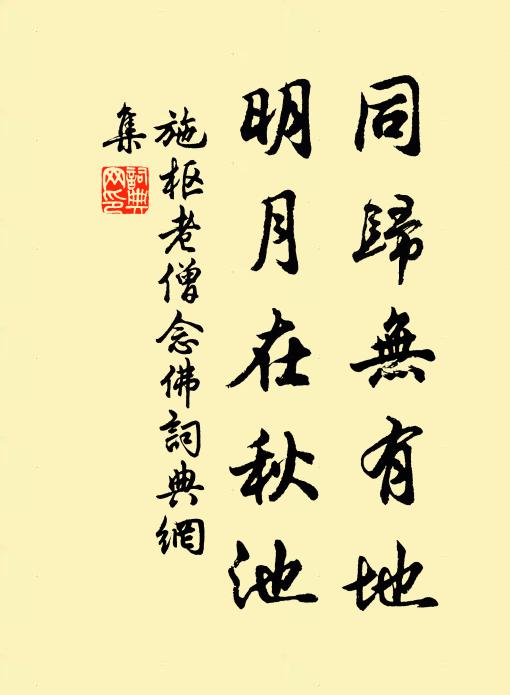 同歸無有地
明月在秋池
施枢老僧念佛詞典網
集
詞典網印